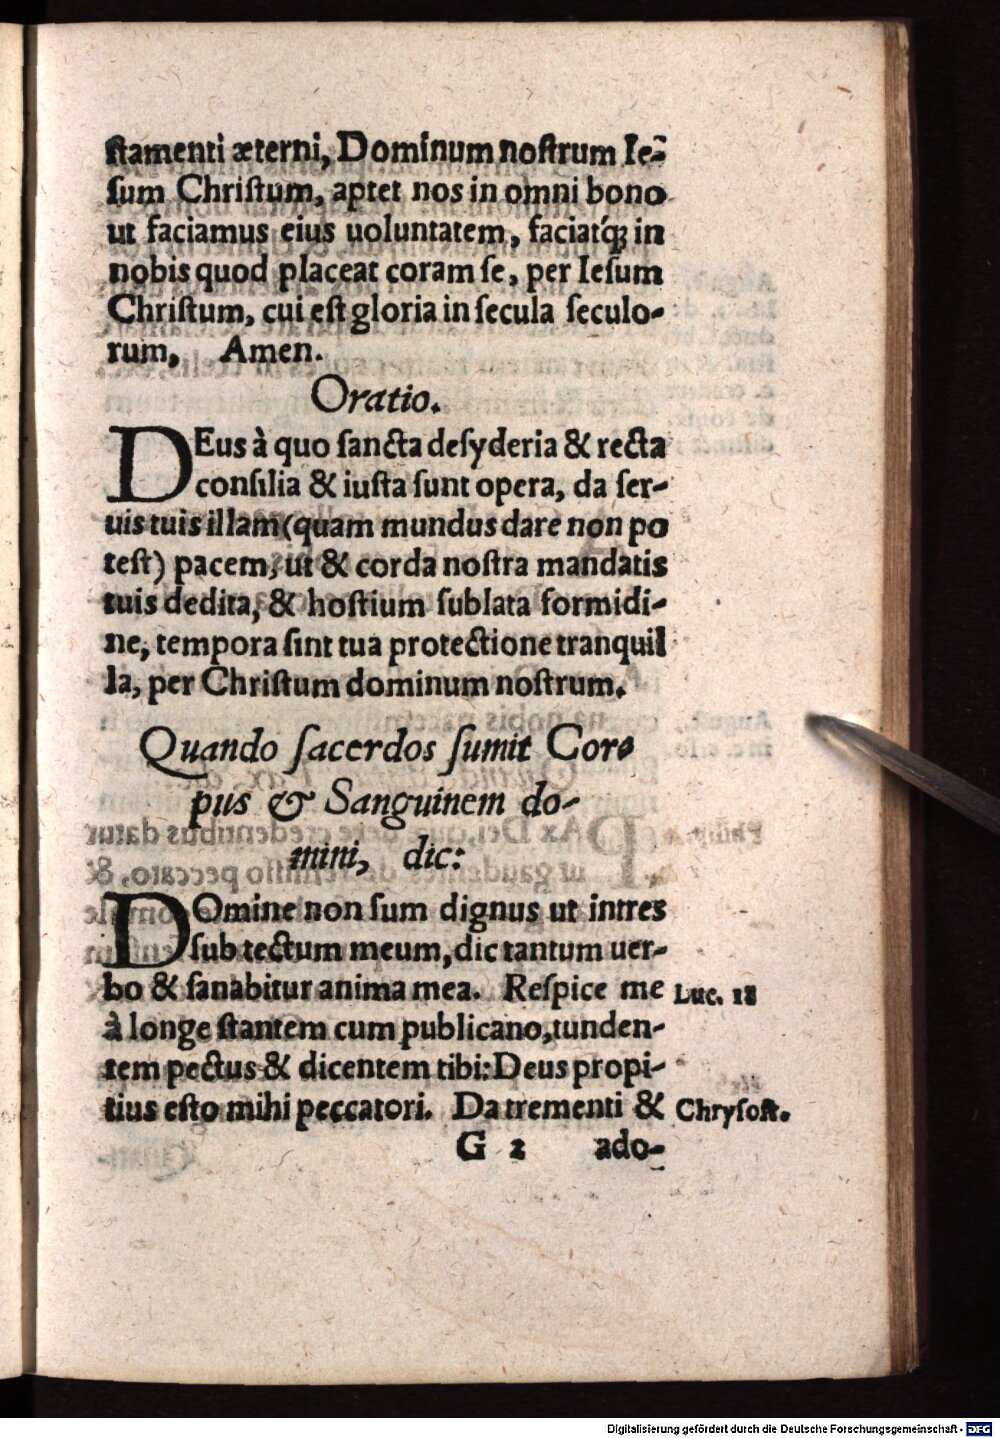 ſtamenti æterni, Dominum noſtrum Ie-
ſum Chriſtum, aptet nos in omni bono
ut faciamus eius uoluntatem, faciatq́ꝫ in
nobis quod placeat coram ſe, per Ieſum
Chriſtum, cui eſt gloria in ſecula ſeculo-
rum, Amen.
Oratio.
DEus à quo ſancta deſyderia & recta
conſilia & iuſta ſunt opera, da ſer-
uis tuis illam (quam mundus dare non po
teſt) pacem, ut & corda noſtra mandatis
tuis dedita, & hoſtium ſublata formidi-
ne, tempora ſint tua protectione tranquil
la, per Chriſtum dominum noſtrum.
Quando ſacerdos ſumit Cor-
pus & Sanguinem do-
mini, dic:
DOmine non ſum dignus ut intres
ſub tectum meum, dic tantum uer-
bo & ſanabitur anima mea. Reſpice me Luc. 18
à longe ſtantem cum publicano, tunden-
tem pectus & dicentem tibi: Deus propi-
tius eſto mihi peccatori. Da trementi & Chryſoſt.
G 2 ado-
Digitalisierung gefördert durch die Deutsche Forschungsgemeinschaft - DFG